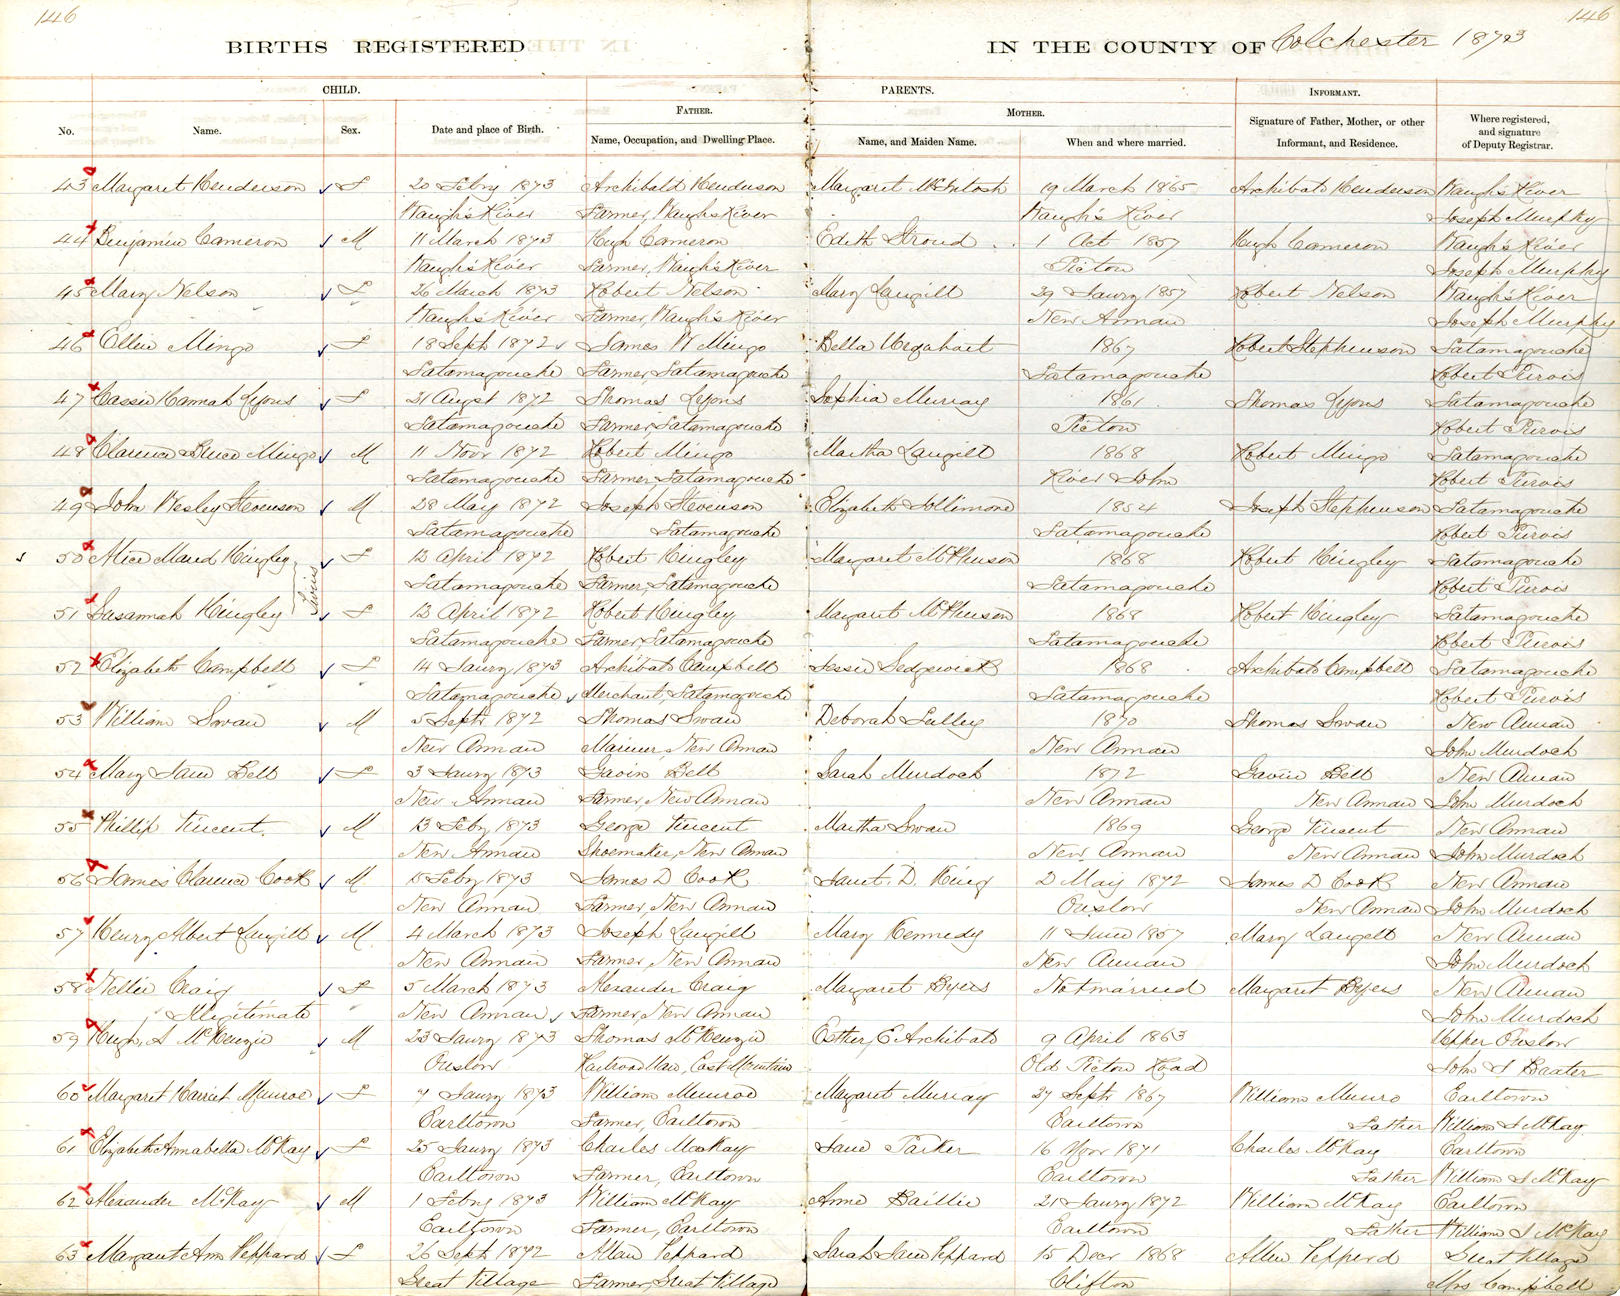 146 146
BIRTHS REGISTERED IN THE COUNTY OF Colchester 1873
CHILD. PARENTS. INFORMANT.
FATHER. MOTHER.
No. Name. Sex. Date and place of Birth. Name, Occupation, and Dwelling Place. Name, and Maiden Name. When and where married. Signature of Father, Mother, or other Informant, and Residence. Where registered, and signature of Deputy Registrar.
43 Margaret Henderson F 20 Feby 1873 Archibald Henderson Margaret McIntosh 19 March 1865 Archibald Henderson Waugh's River
Waugh's River Farmer, Waugh's River Waugh's River Joseph Murphy
44 Benjamin Cameron M 11 March 1873 Hugh Cameron Edith Stroud 1 Oct 1857 Hugh Cameron Waugh's River
Waugh's River Farmer, Waugh's River Pictou Joseph Murphy
45 Mary Nelson F 26 March 1873 Robert Nelson Mary Langill 29 Jany 1857 Robert Nelson Waugh's River
Waugh's River Farmer, Waugh's River New Annan Joseph Murphy
46 Ellen Mingo F 18 Sept 1872 James W Mingo Bella Urquhart 1867 Robert Stephenson Tatamagouche
Tatamagouche Farmer, Tatamagouche Tatamagouche Robert Purvis
47 Cassie Hannah Lyons F 21 Augst 1872 Thomas Lyons Sophia Murray 1861 Thomas Lyons Tatamagouche
Tatamagouche Farmer Tatamagouche Pictou Robert Purvis
48 Clarence Bruce Mingo M 11 Novr 1872 Robert Mingo Martha Langill 1868 Robert Mingo Tatamagouche
Tatamagouche Farmer Tatamagouche River John Robert Purvis
49 John Wesley Stevenson M 28 May 1872 Joseph Stevenson Elizabeth Jollimore 1854 Joseph Stephenson Tatamagouche
Tatamagouche Tatamagouche Tatamagouche Robert Purvis
50 Alice Maud Hingley F 13 April 1872 Robert Hingley Margaret McPherson 1868 Robert Hingley Tatamagouche
Twins Tatamagouche Farmer, Tatamagouche Tatamagouche Robert Purvis
51 Susannah Hingley F 13 April 1872 Robert Hingley Margaret McPherson 1868 Robert Hingley Tatamagouche
Tatamagouche Farmer, Tatamagouche Tatamagouche Robert Purvis
52 Elizabeth Campbell F 14 Jany 1873 Archibald Campbell Jessie Sedgwick 1868 Archibald Campbell Tatamagouche
Tatamagouche Merchant, Tatamagouche Tatamagouche Robert Purvis
53 William Swan M 5 Sept 1872 Thomas Swan Deborah Tulley 1870 Thomas Swan New Annan
New Annan Mariner, New Annan New Annan John Murdoch
54 Mary Jane Bell F 3 Jany 1873 Gavin Bell Sarah Murdoch 1872 Gavin Bell New Annan
New Annan Farmer, New Annan New Annan New Annan John Murdoch
55 Phillip Vincent M 13 Feby 1873 George Vincent Martha Swan 1869 George Vincent New Annan
New Annan Shoemaker, New Annan New Annan New Annan John Murdoch
56 James Clarence Cook M 15 Feby 1873 James D Cook Janet. D. King 2 May 1872 James D Cook New Annan
New Annan Farmer, New Annan Onslow New Annan John Murdoch
57 Henry Albert Langill M 4 March 1873 Joseph Langill Mary Kennedy 11 June 1857 Mary Langell New Annan
New Annan Farmer, New Annan New Annan John Murdoch
58 Nellie Craig F 5 March 1873 Alexander Craig Margaret Byers Not married Margaret Byers New Annan
Illegitimate New Annan Farmer, New Annan John Murdoch
59 Hugh, S McKenzie M 23 Jany 1873 Thomas McKenzie Esther, E Archibald 9 April 1863 Upper Onslow
Onslow Railroad Man, East Mountain Old Pictou Road John S Baxter
60 Margaret Harriet Munroe F 7 Jany 1873 William Munroe Margaret Murray 27 Sept 1867 William Munro Earltown
Earltown Farmer, Earltown Earltown Father William S McKay
61 Elizabeth Annabella McKay F 25 Jany 1873 Charles MacKay Jane Parker 16 Novr 1871 Charles McKay Earltown
Earltown Farmer, Earltown Earltown Father William S McKay
62 Alexander McKay M 1 Feby 1873 William McKay Anne Baillie 21 Jany 1872 William McKay Earltown
Earltown Farmer, Earltown Earltown Father William S McKay
63 Margaret Ann Peppard F 26 Sept 1872 Allan Peppard Sarah Jane Peppard 15 Decr 1868 Allen Pepperd Great Village
Great Village Farmer, Great Village Clifton Mrs Campbell